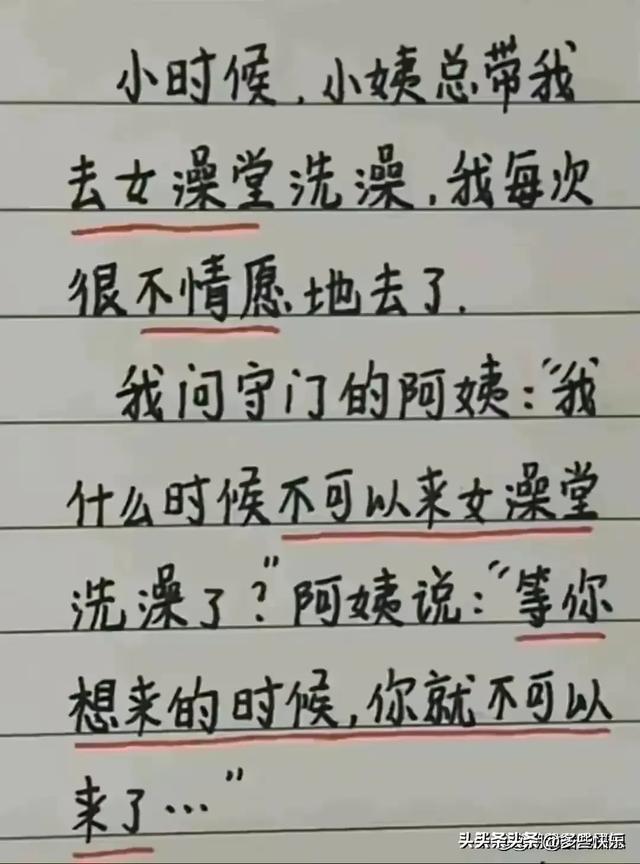 小时候,小姨总带我
去女澡堂洗澡,我每次
很不情愿地去了.
我问守门的阿姨:“我
什么时候不可以来女澡堂
洗澡了?”阿姨说:“等你
想来的时候,你就不可以
来了…”
头条 @多些快乐